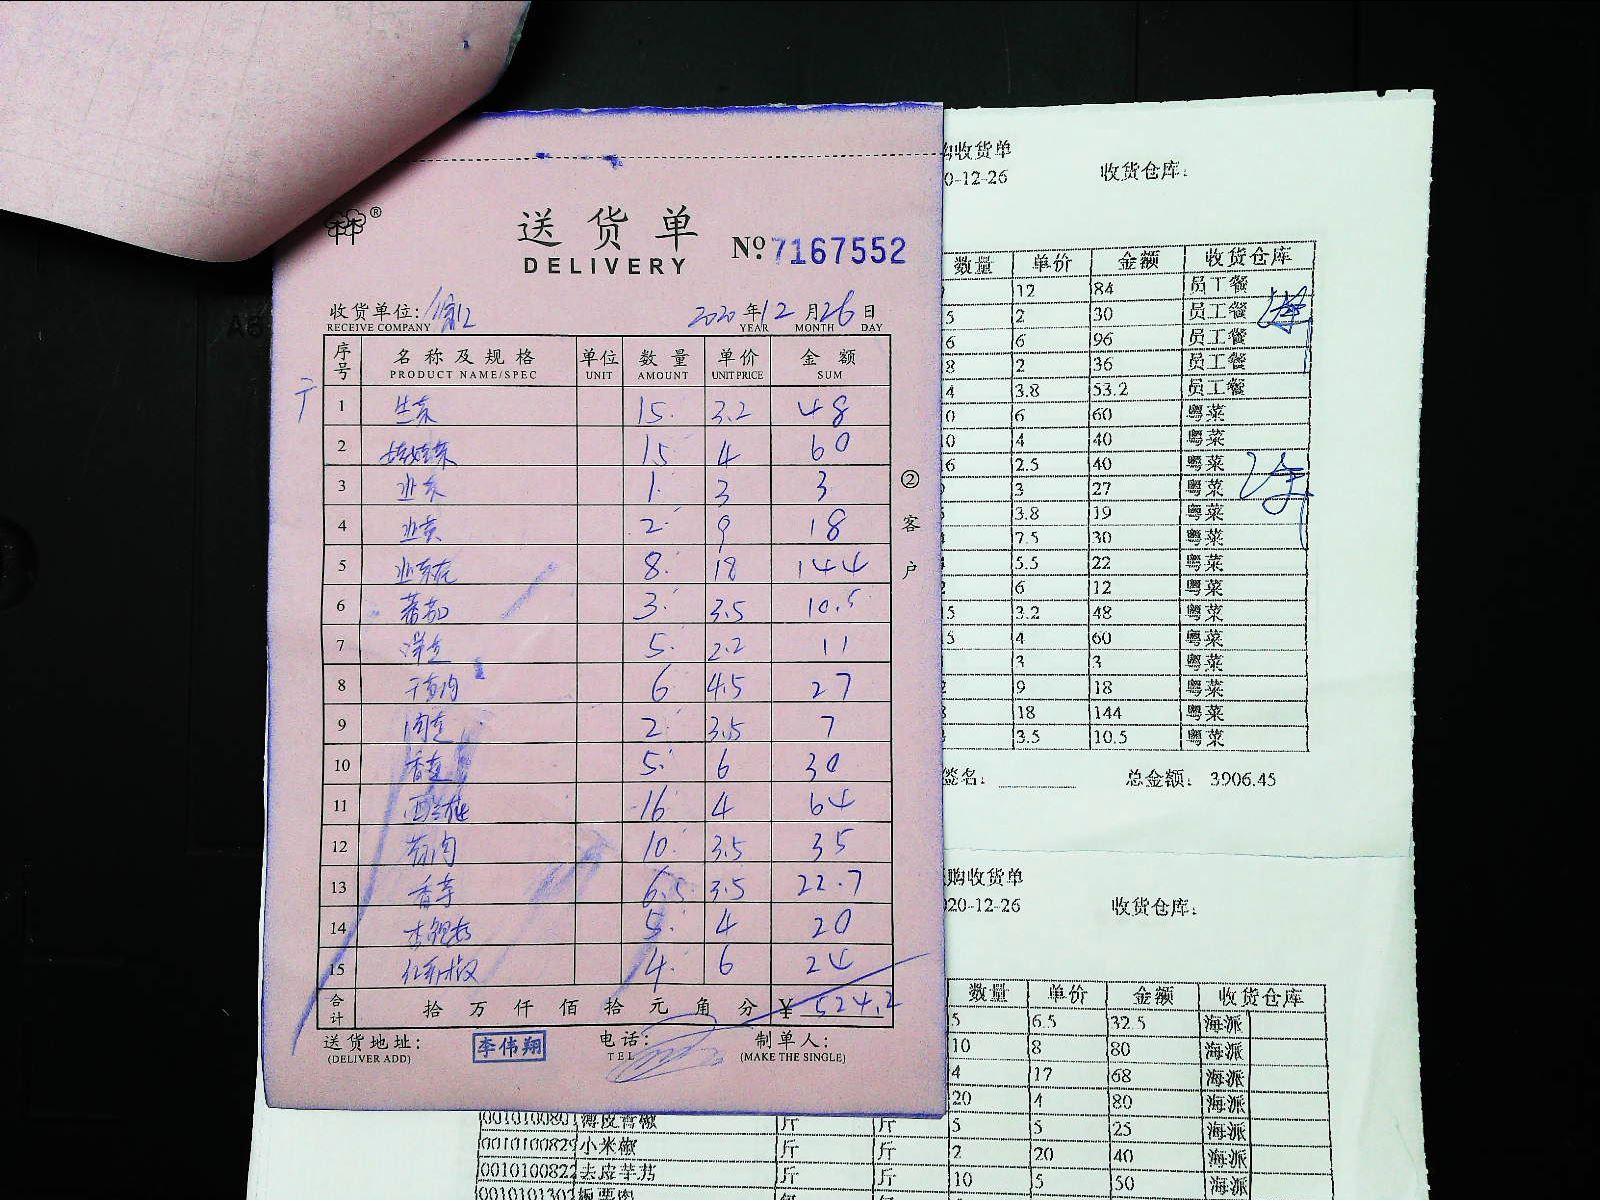 送货单
DELIVERY
No. 7167552
收货单位:
RECEIVE COMPANY
2020年12月26日
YEAR MONTH DAY
序号 名称及规格 单位 数量 单价 金额
PRODUCT NAME/SPEC UNIT AMOUNT UNIT PRICE SUM
1 生菜 15 3.2 48
2 娃娃菜 15 4 60
3 1 3 3
4 2 9 18
5 8 18 144
6 蕃茄 3 3.5 10.5
7 5 2.2 11
8 6 4.5 27
9 2 3.5 7
10 5 6 30
11 西兰花 16 4 64
12 10 3.5 35
13 香芋 6.5 3.5 22.7
14 5 4 20
15 4 6 24
合计 拾万仟佰拾元角分 ¥ 524.2
送货地址: 李伟翔 电话: 制单人:
(DELIVER ADD) TEL (MAKE THE SINGLE)
②客户
购收货单
0-12-26 收货仓库:
数量 单价 金额 收货仓库
12 84 员工餐
5 2 30 员工餐
6 6 96 员工餐
8 2 36 员工餐
4 3.8 53.2 员工餐
0 6 60 粤菜
0 4 40 粤菜
6 2.5 40 粤菜
3 27 粤菜
3.8 19 粤菜
7.5 30 粤菜
5.5 22 粤菜
6 12 粤菜
5 3.2 48 粤菜
5 4 60 粤菜
3 3 粤菜
9 18 粤菜
18 144 粤菜
3.5 10.5 粤菜
签名: 总金额: 3906.45
购收货单
020-12-26 收货仓库:
数量 单价 金额 收货仓库
5 6.5 32.5 海派
10 8 80 海派
4 17 68 海派
20 4 80 海派
0010100801 薄皮青椒 斤 斤 5 5 25 海派
0010100829 小米椒 斤 斤 2 20 40 海派
0010100822 去皮芋艿 斤 斤 10 5 50 海派